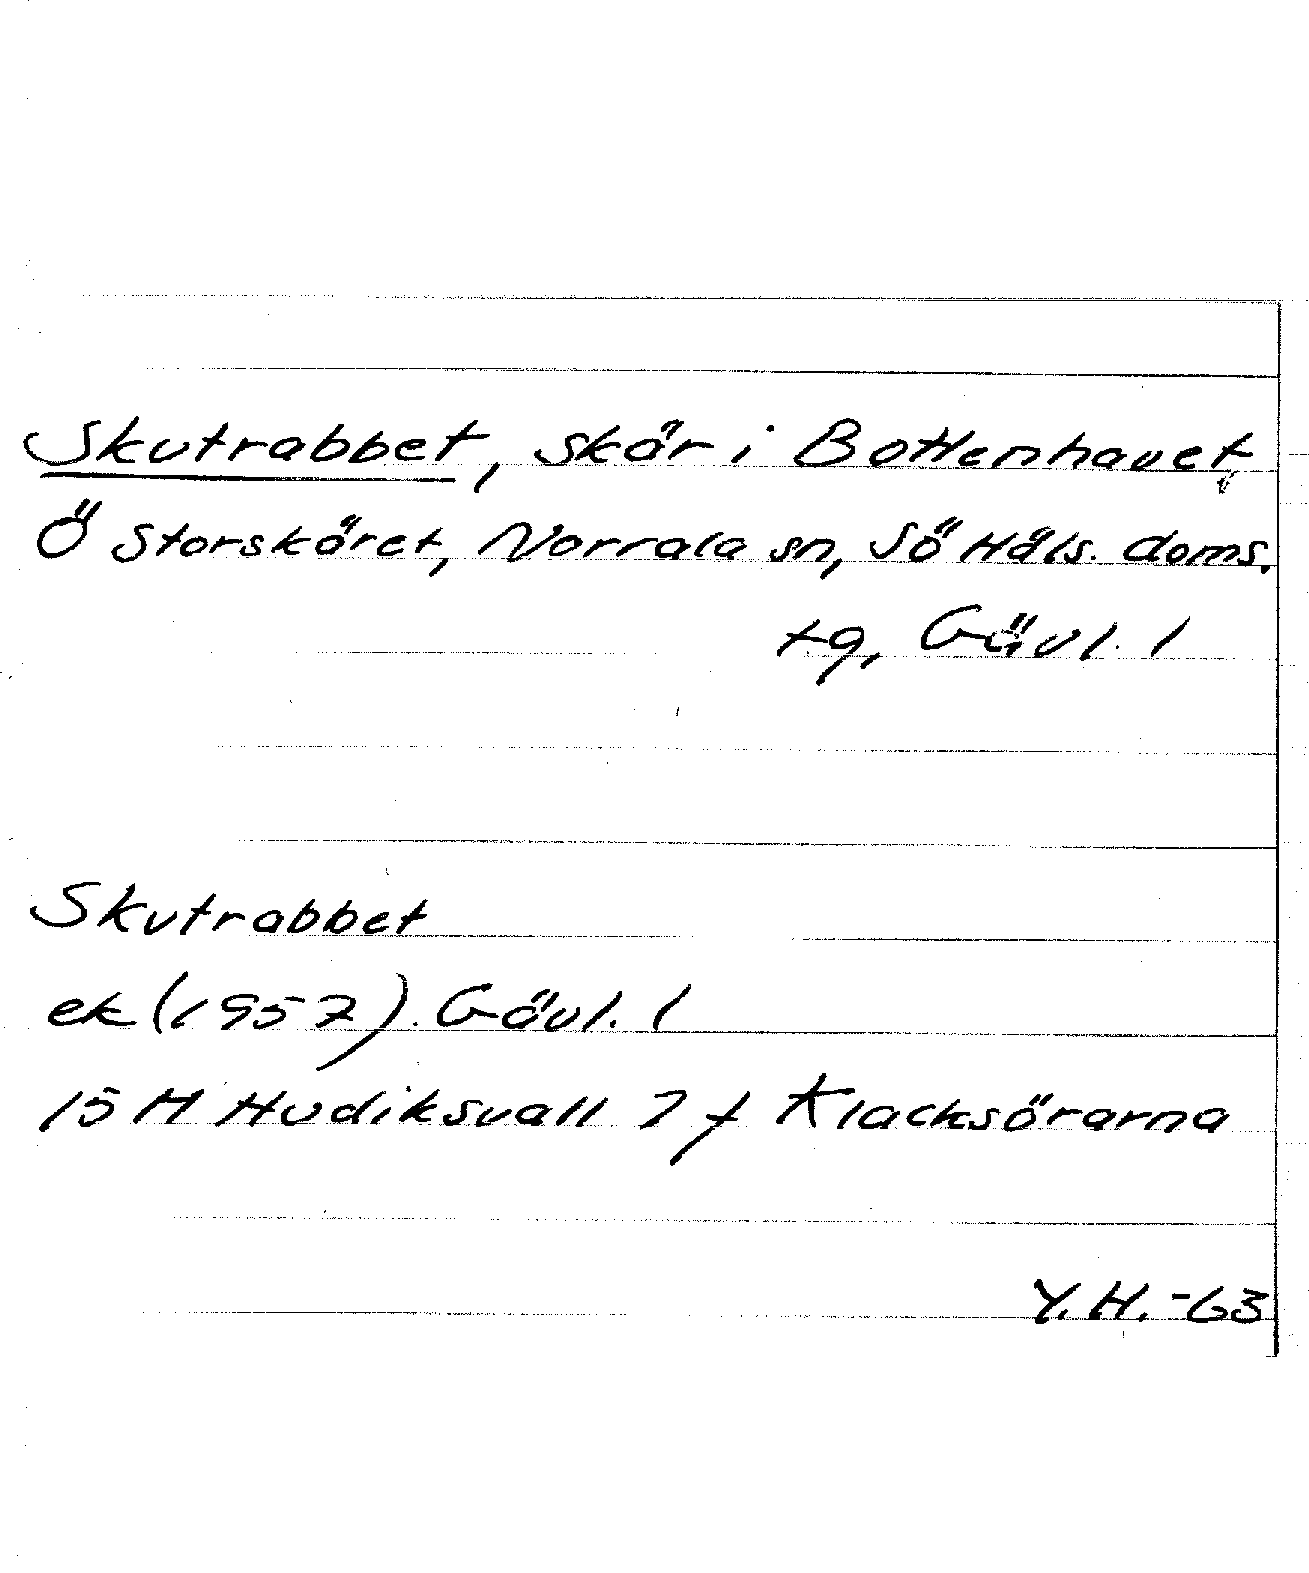 Skutrabbet, skär i Bottenhavet
Ö Storskäret, Norrala sn, Sö Häls. doms.
tg, Gävl. l
Skutrabbet
ek (1957) Gävl. l
15 H Hudiksvall 7 f Klacksörarna
Y.H.-63